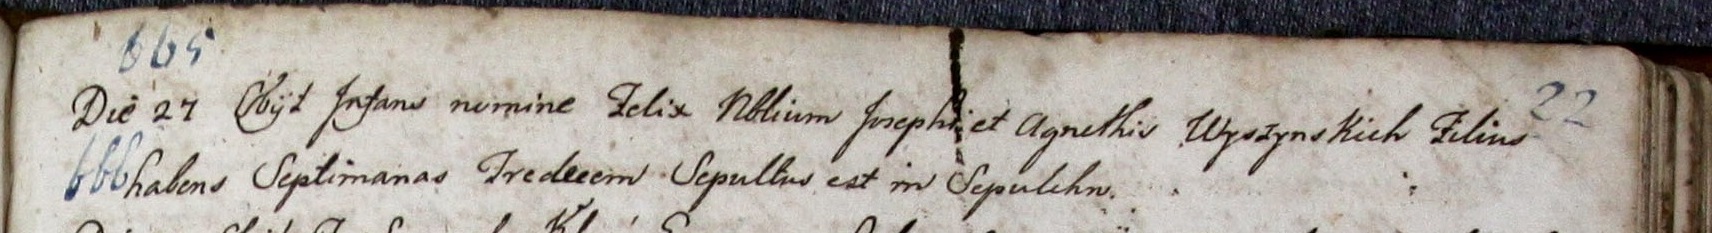 665
22
Die 27 Obijt Infans nomine Felix Nblium Josephi et Agnethis Wyszynskich Filius
666 habens Septimanas Tredecem Sepultus est in Sepulchro.